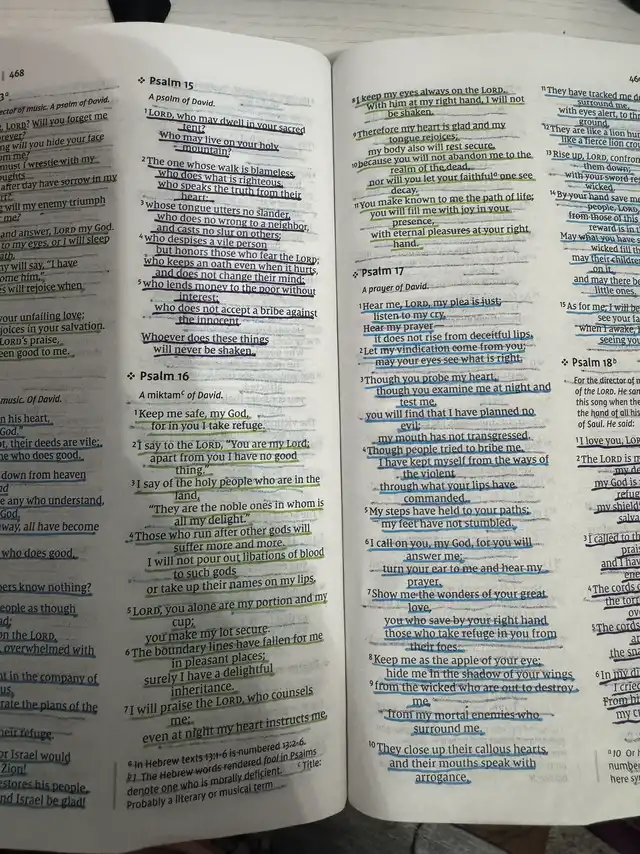 468
director of music. A psalm of David.
LORD? Will you forget me
forever?
long will you hide your face
from me?
must I wrestle with my
thoughts
after day have sorrow in my
heart?
will my enemy triumph
me?
and answer, LORD my God.
to my eyes, or I will sleep
my will say, "I have
overcome him,"
es will rejoice when
your unfailing love;
rejoices in your salvation.
LORD's praise,
been good to me.
music. Of David.
in his heart,
God."
their deeds are vile;
one who does good.
down from heaven
are any who understand,
God.
away, all have become
who does good,
know nothing?
people as though
on the LORD.
overwhelmed with
in the company of
the plans of the
their refuge.
for Israel would
Zion!
restores his people,
and Israel be glad!
❖ Psalm 15
A psalm of David.
1 LORD, who may dwell in your sacred
tent?
Who may live on your holy
mountain?
2 The one whose walk is blameless,
who does what is righteous,
who speaks the truth from their
heart;
3 whose tongue utters no slander,
who does no wrong to a neighbor,
and casts no slur on others;
4 who despises a vile person
but honors those who fear the LORD;
who keeps an oath even when it hurts,
and does not change their mind;
5 who lends money to the poor without
interest;
who does not accept a bribe against
the innocent.
Whoever does these things
will never be shaken.
❖ Psalm 16
A miktam c of David.
1 Keep me safe, my God,
for in you I take refuge.
2 I say to the LORD, "You are my Lord;
apart from you I have no good
thing."
3 I say of the holy people who are in the
land,
"They are the noble ones in whom is
all my delight."
4 Those who run after other gods will
suffer more and more.
I will not pour out libations of blood
to such gods
or take up their names on my lips.
5 LORD, you alone are my portion and my
cup;
you make my lot secure.
6 The boundary lines have fallen for me
in pleasant places;
surely I have a delightful
inheritance.
7 I will praise the LORD, who counsels
me;
even at night my heart instructs me.
a In Hebrew texts 13:1-6 is numbered 13:2-6.
The Hebrew words rendered fool in Psalms
denote one who is morally deficient. c Title:
Probably a literary or musical term
8 I keep my eyes always on the LORD.
With him at my right hand, I will not
be shaken.
9 Therefore my heart is glad and my
tongue rejoices;
my body also will rest secure,
10 because you will not abandon me to the
realm of the dead,
nor will you let your faithful a one see
decay.
11 You make known to me the path of life;
you will fill me with joy in your
presence,
with eternal pleasures at your right
hand.
❖ Psalm 17
A prayer of David.
1 Hear me, LORD, my plea is just;
listen to my cry.
Hear my prayer—
it does not rise from deceitful lips.
2 Let my vindication come from you;
may your eyes see what is right.
3 Though you probe my heart,
though you examine me at night and
test me,
you will find that I have planned no
evil;
my mouth has not transgressed.
4 Though people tried to bribe me,
I have kept myself from the ways of
the violent
through what your lips have
commanded.
5 My steps have held to your paths;
my feet have not stumbled.
6 I call on you, my God, for you will
answer me;
turn your ear to me and hear my
prayer.
7 Show me the wonders of your great
love,
you who save by your right hand
those who take refuge in you from
their foes.
8 Keep me as the apple of your eye;
hide me in the shadow of your wings
9 from the wicked who are out to destroy
me,
from my mortal enemies who
surround me.
10 They close up their callous hearts,
and their mouths speak with
arrogance.
11 They have tracked me
surround me,
with eyes alert, to
ground.
12 They are like a lion
like a fierce lion
13 Rise up, LORD, confront
them down;
with your sword
wicked.
14 By your hand save
people, LORD,
from those of this
reward is in
May what you have
wicked fill
may their children
on it,
and may there be
little ones.
15 As for me, I will be
see your
when I awake, I
seeing your
❖ Psalm 18 b
For the director of
of the LORD. He
this song when the
the hand of all his
of Saul. He said:
1 I love you, LORD
2 The LORD is
my God is
my shield
3 I called to
and I have
4 The cords
the
5 The cords
the
6 In my
I
From
my
a 10 Or
here